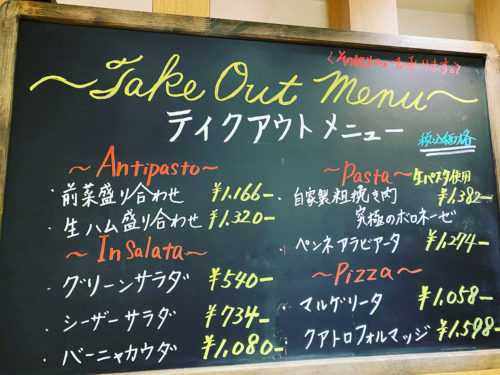 くその他メニューもあります。?
~Take Out Menu~
テイクアウトメニュー
税込価格
~Antipasto~
・前菜盛り合わせ ¥1.166-
・生ハム盛り合わせ ¥1.320-
~Insalata~
・グリーンサラダ ¥540-
・シーザーサラダ ¥734-
・バーニャカウダ ¥1.080-
~Pasta~ 生パスタ使用
・自家製粗挽き肉 ¥1.382-
究極のボロネーゼ
・ペンネアラビアータ ¥1.274-
~Pizza~
・マルゲリータ ¥1.058-
・クアトロフォルマッジ ¥1.598-